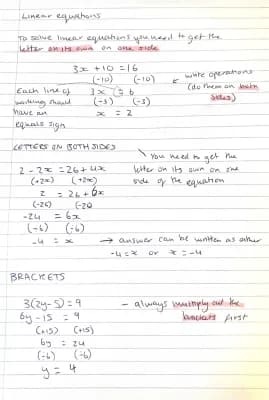 Linear equations
To solve linear equations you need to get the
letter on its own on one side
3x + 10 = 16
(-10) (-10)
← write operations
(do them on both
sides)
Each line of
working should
have an
equals sign
3x = 6
(÷3) (÷3)
x = 2
LETTERS ON BOTH SIDES
You need to get the
letter on its own on one
side of the equation
2 - 2x = 26 + 4x
(+2x) (+2x)
2 = 26 + 6x
(-26) (-26)
-24 = 6x
(÷6) (÷6)
-4 = x → answer can be written as either
-4 = x or x = -4
BRACKETS
3(2y - 5) = 9 - always multiply out the
brackets first
6y - 15 = 9
(+15) (+15)
6y = 24
(÷6) (÷6)
y = 4